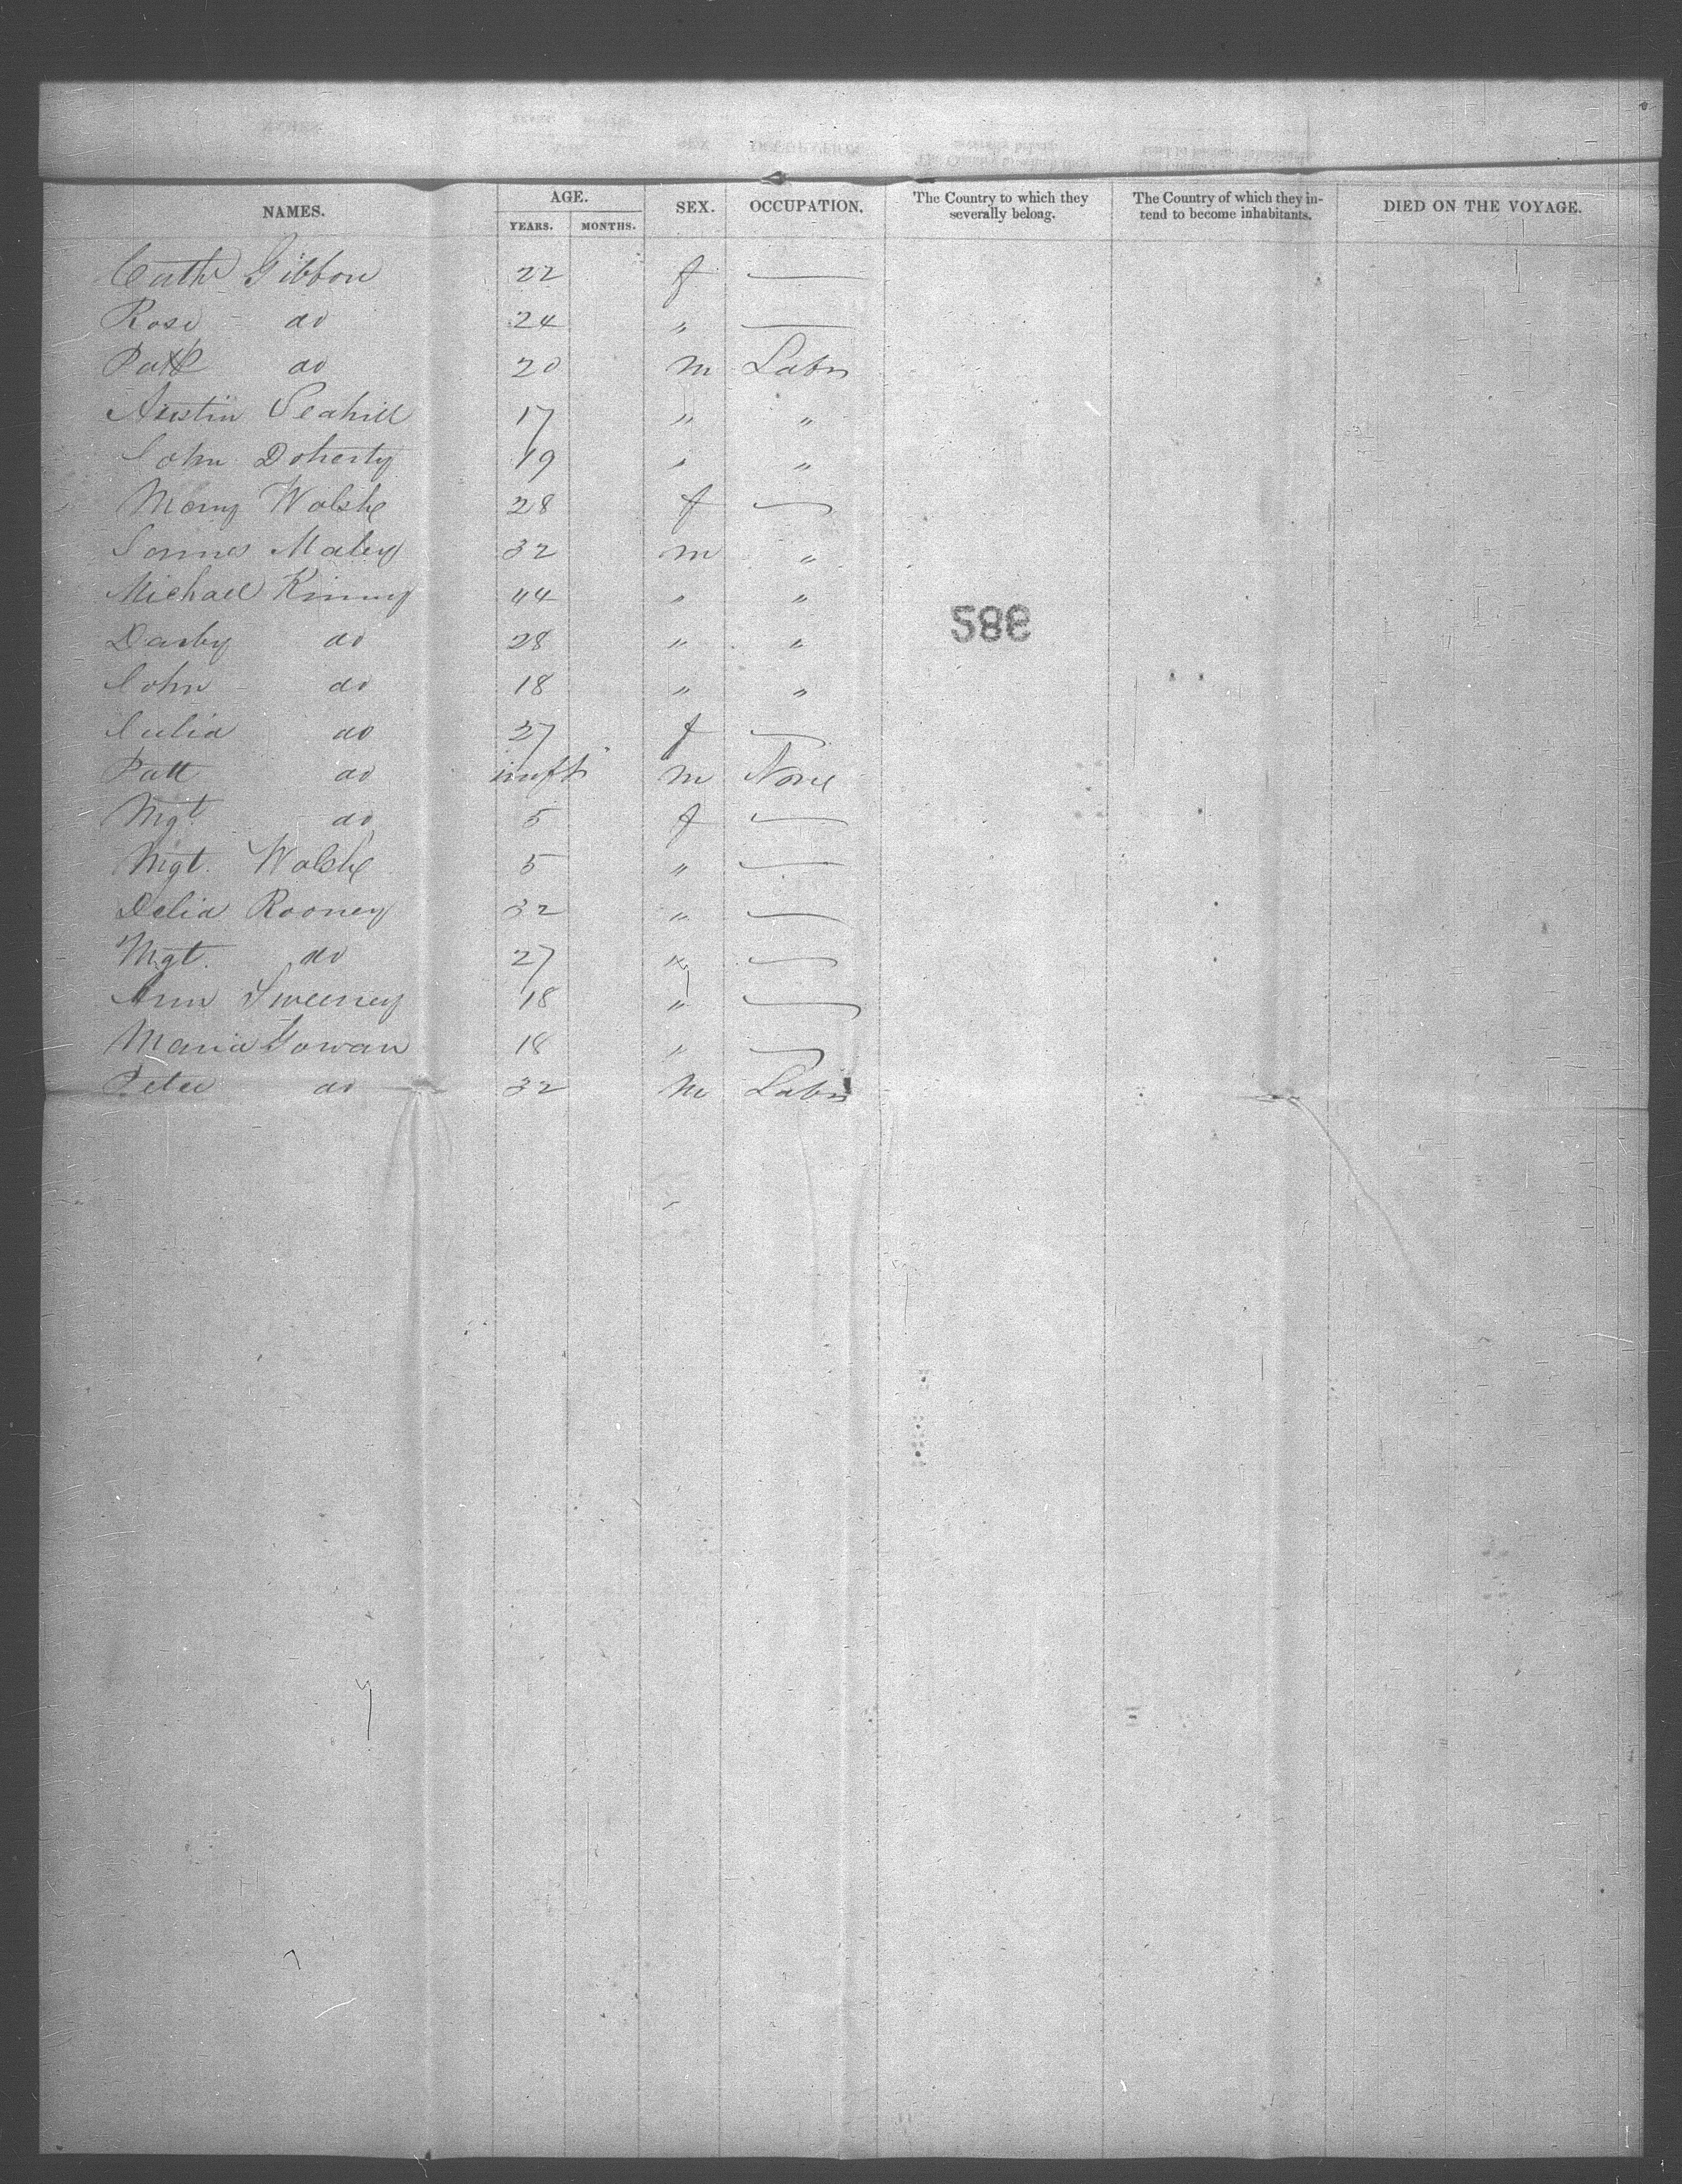 NAMES. AGE. YEARS. MONTHS. SEX. OCCUPATION. The Country to which they severally belong. The Country of which they intend to become inhabitants. DIED ON THE VOYAGE.
Cath Gibbon 22 f —
Rose do 24 " —
Patk do 20 m Labr
Austin Scahill 17 " "
John Doherty 19 " "
Mary Walshe 28 f —
James Maley 32 m "
Michael Kinny 44 " "
Darby do 28 " "
John do 18 " "
Julia do 27 f —
Patt do inft m None
Mgt do 5 f —
Mgt. Walshe 5 " —
Delia Rooney 32 " —
Mgt. do 27 " —
Ann Sweeney 18 " —
Maria Gowan 18 " —
Peter do 32 m Labr